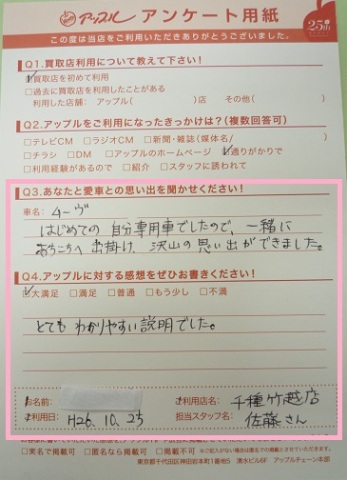 アップル アンケート用紙
25th
この度は当店をご利用いただきありがとうございました。
Q1.買取店利用について教えて下さい!
☑買取店を初めて利用
□過去に買取店を利用したことがある
利用した店舗: アップル( )店 その他( )
Q2.アップルをご利用になったきっかけは?(複数回答可)
□テレビCM □ラジオCM □新聞・雑誌(媒体名/ )
□チラシ □DM □アップルのホームページ ☑通りがかりで
□利用経験があるので □紹介 □スタッフに誘われて
Q3.あなたと愛車との思い出を聞かせください!
車名: キューブ
はじめての自分専用車でしたので、一緒に
あちこちへ出掛け、沢山の思い出ができました。
Q4.アップルに対する感想をぜひお書きください!
☑大満足 □満足 □普通 □もう少し □不満
とてもわかりやすい説明でした。
お名前:
ご利用店名: 千種竹越店
ご利用日: H26.10.25
担当スタッフ名: 佐藤さん
□実名で掲載可 □匿名なら掲載可 □掲載不可
東京都千代田区神田岩本町1番地5 清水ビル6F アップルチェーン本部